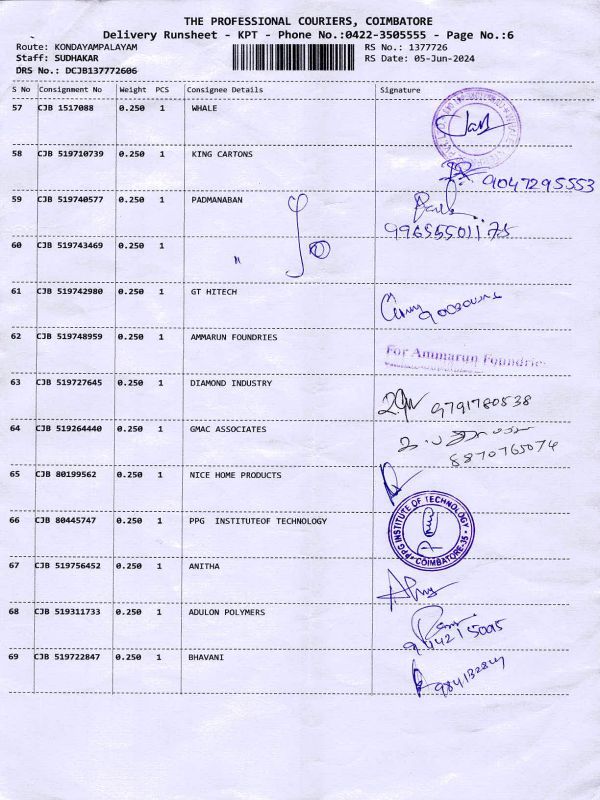 THE PROFESSIONAL COURIERS, COIMBATORE
Delivery Runsheet - KPT - Phone No.:0422-3505555 - Page No.:6
Route: KONDAYAMPALAYAM RS No.: 1377726
Staff: SUDHAKAR RS Date: 05-Jun-2024
DRS No.: DCJB137772606
S No Consignment No Weight PCS Consignee Details Signature
57 CJB 1517088 0.250 1 WHALE
58 CJB 519710739 0.250 1 KING CARTONS 9047295553
59 CJB 519740577 0.250 1 PADMANABAN
99655501175
60 CJB 519743469 0.250 1 "
61 CJB 519742980 0.250 1 GT HITECH
62 CJB 519748959 0.250 1 AMMARUN FOUNDRIES For Ammarun Foundries
63 CJB 519727645 0.250 1 DIAMOND INDUSTRY 9791780538
64 CJB 519264440 0.250 1 GMAC ASSOCIATES
8870765074
65 CJB 80199562 0.250 1 NICE HOME PRODUCTS
66 CJB 80445747 0.250 1 PPG INSTITUTEOF TECHNOLOGY PPG INSTITUTE OF TECHNOLOGY * COIMBATORE-35 *
67 CJB 519756452 0.250 1 ANITHA
68 CJB 519311733 0.250 1 ADULON POLYMERS
9442150095
69 CJB 519722847 0.250 1 BHAVANI